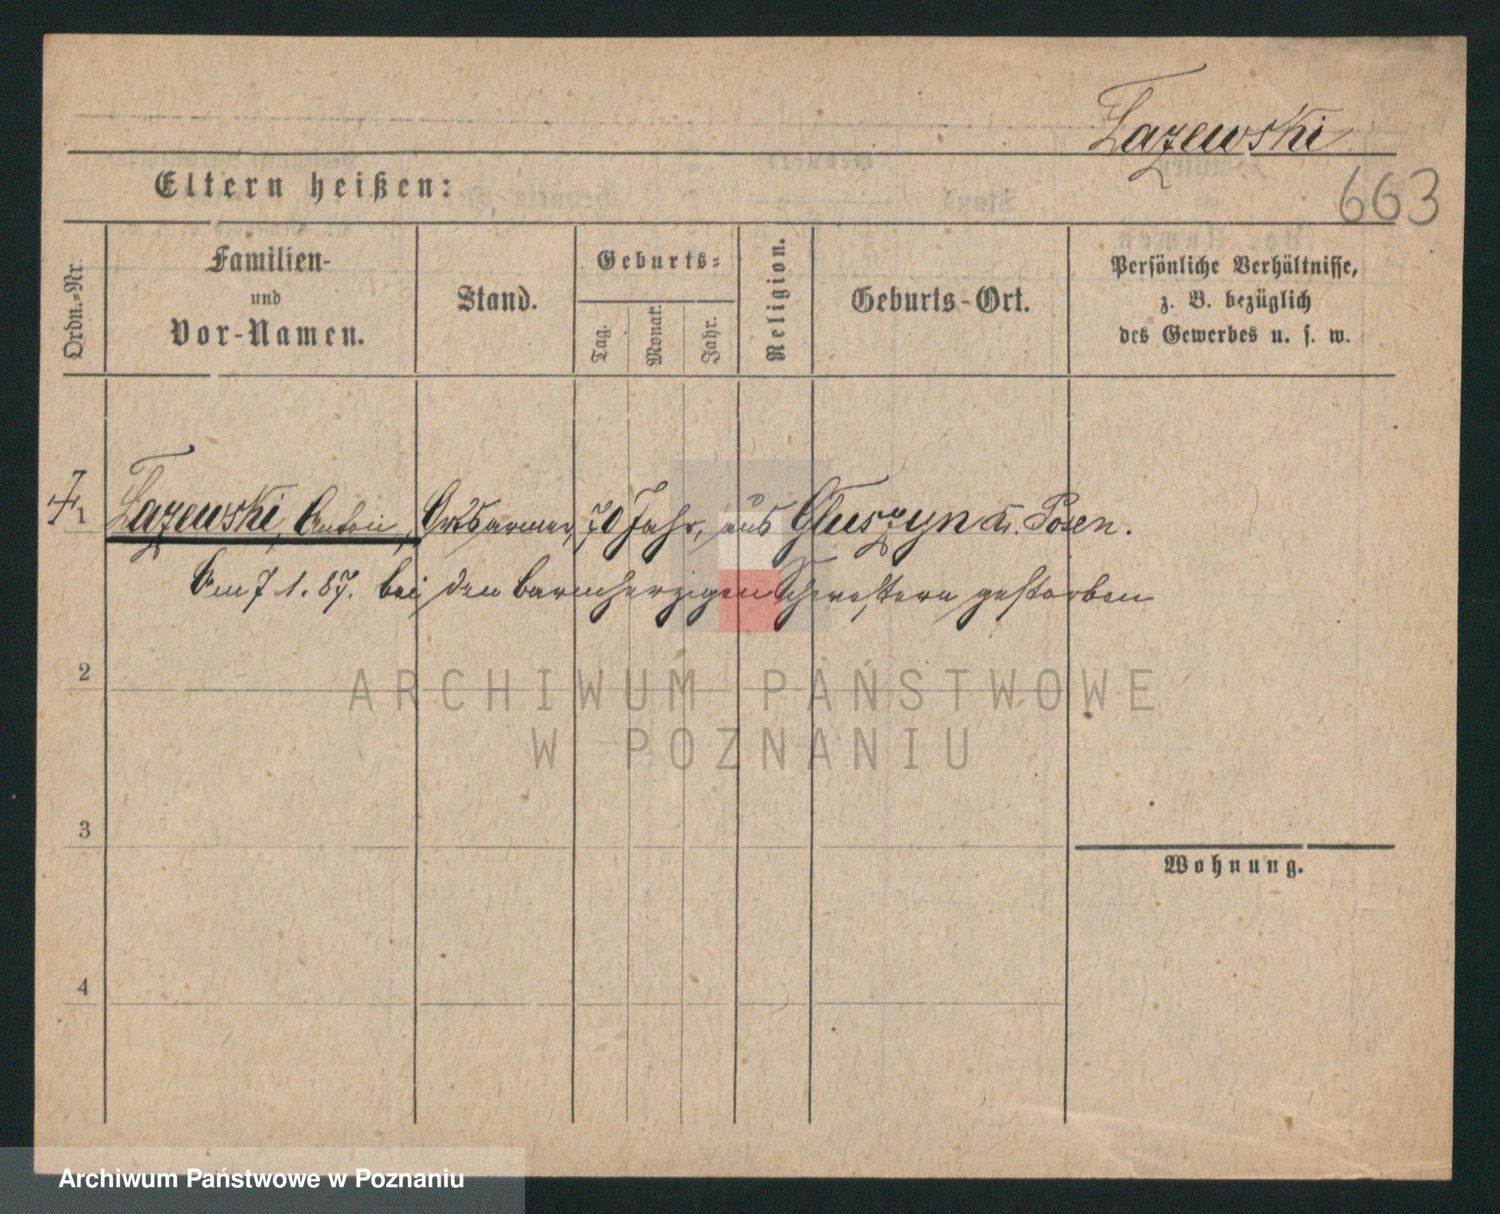 Łazewski
663
Eltern heißen:
Ordn.-Nr.
Familien-
und
Vor-Namen.
Stand.
Geburts-
Tag.
Monat.
Jahr.
Religion.
Geburts-Ort.
Persönliche Verhältnisse,
z. B. bezüglich
des Gewerbes u. s. w.
1 Łazewski, Anton, Ortsarmer, 70 Jahr, aus Gluszyn Kr. Posen.
Am 7 1. 87. bei den barmherzigen Schwestern gestorben
2
ARCHIWUM PAŃSTWOWE
W POZNANIU
3
Wohnung.
4
Archiwum Państwowe w Poznaniu